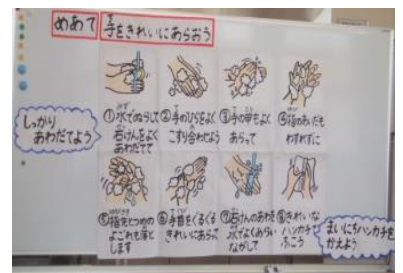 めあて
手をきれいにあらおう
しっかり
あわだてよう
①水でぬらして
石けんをよく
あわだてて
②手のひらをよく
こすり合わせよう
③手の甲もよく
あらって
④指のあいだも
わすれずに
⑤指先とつめの
よごれを落と
します
⑥手首をぐるぐる
きれいにあらって
⑦石けんのあわを
水でよくあらい
ながして
⑧きれいな
ハンカチで
ふこう
まいにちハンカチを
かえよう